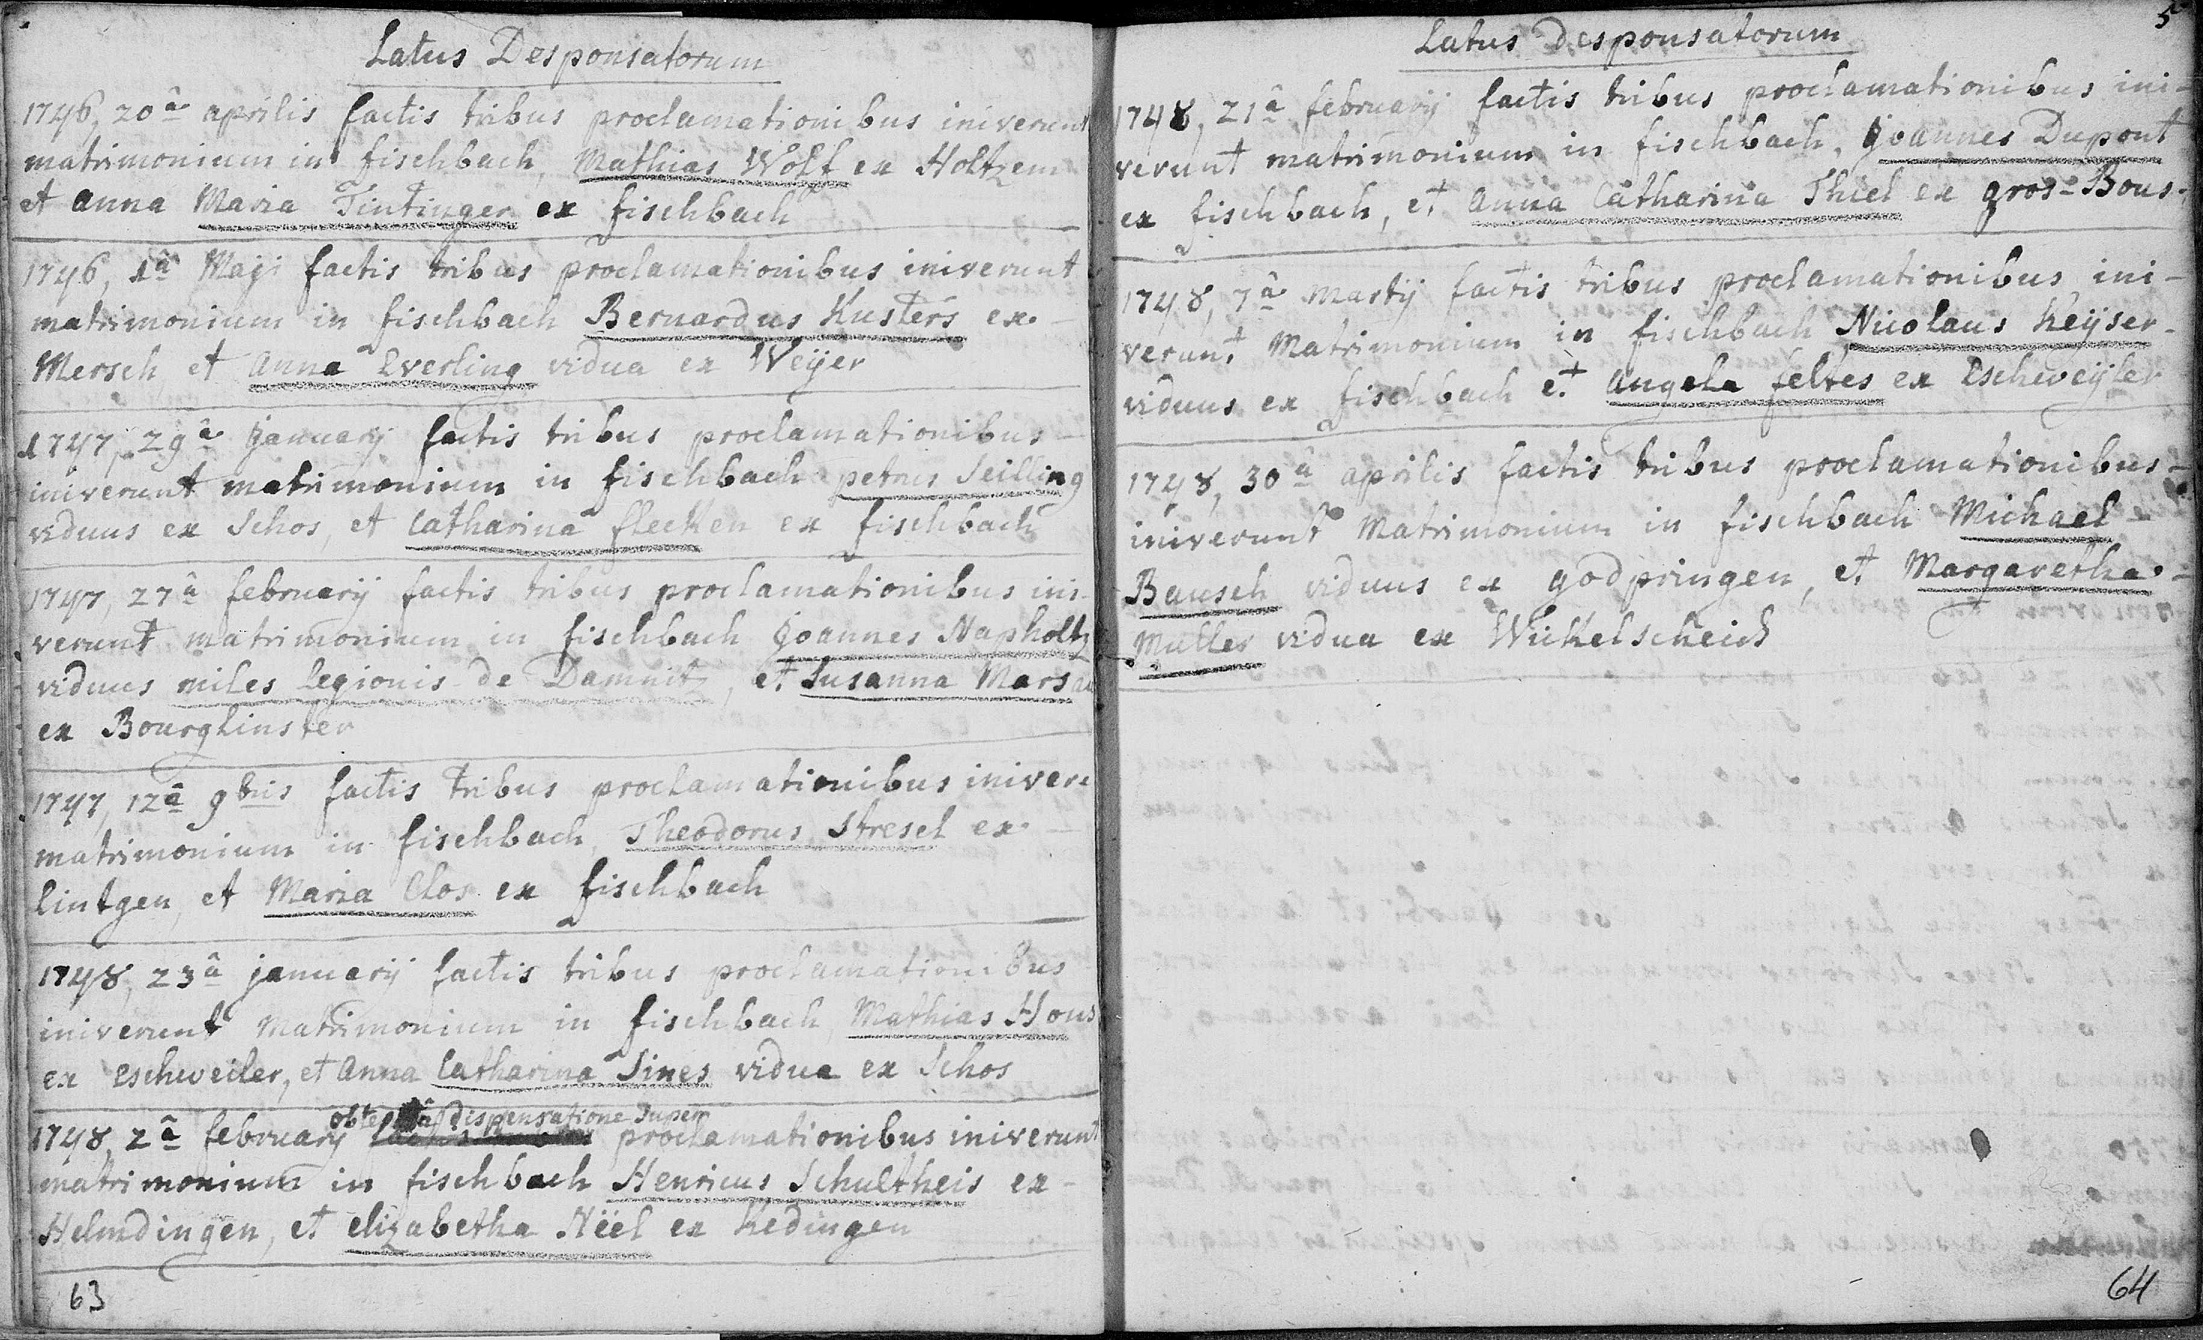 Latus Desponsatorum
1746, 20â aprilis factis tribus proclamationibus iniverunt
matrimonium in fischbach, Mathias Wolf ex Holtzem
et anna Maria Tintinger ex fischbach
1746, 1â Maji factis tribus proclamationibus iniverunt
matrimonium in fischbach Bernardus Kusters ex
Mersch, et Anna Everling vidua ex Weÿer
1747, 29â januarij factis tribus proclamationibus
iniverunt matrimonium in fischbach petrus Seilling
viduus ex Schos, et Catharina flecken ex fischbach
1747, 27â februarij factis tribus proclamationibus ini-
verunt matrimonium in fischbach Joannes Napholtz
viduus miles legionis de Damnitz, et Susanna
ex Bourglinster
1747, 12â 9bris factis tribus proclamationibus iniver
matrimonium in fischbach, Theodorus Stresel ex
Lintgen, et Maria Clos ex fischbach
1748, 23â januarij factis tribus proclamationibus
iniverunt matrimonium in fischbach Mathias Hous
ex eschweiler, et Anna Catharina Sines vidua ex Schos
obtentâ dispensatione super
1748, 2â februarij proclamationibus iniverunt
matrimonium in fischbach Henricus Schultheis ex
Helmdingen, et elizabetha Nëel ex Kedingen
63
5
Latus Desponsatorum
1748, 21â februarij factis tribus proclamationibus ini-
verunt matrimonium in fischbach, Joannes Dupont
ex fischbach, et Anna Catharina Thiel ex gros-Bous.
1748, 7â martij factis tribus proclamationibus ini-
verunt Matrimonium in fischbach Nicolaus Keÿser
viduus ex fischbach et Angela feltes ex Escheweÿler
1748, 30â aprilis factis tribus proclamationibus
iniverunt Matrimonium in fischbach Michael
Bausch viduus ex godpringen, et Margaretha
Muller vidua ex Wickelscheid
64